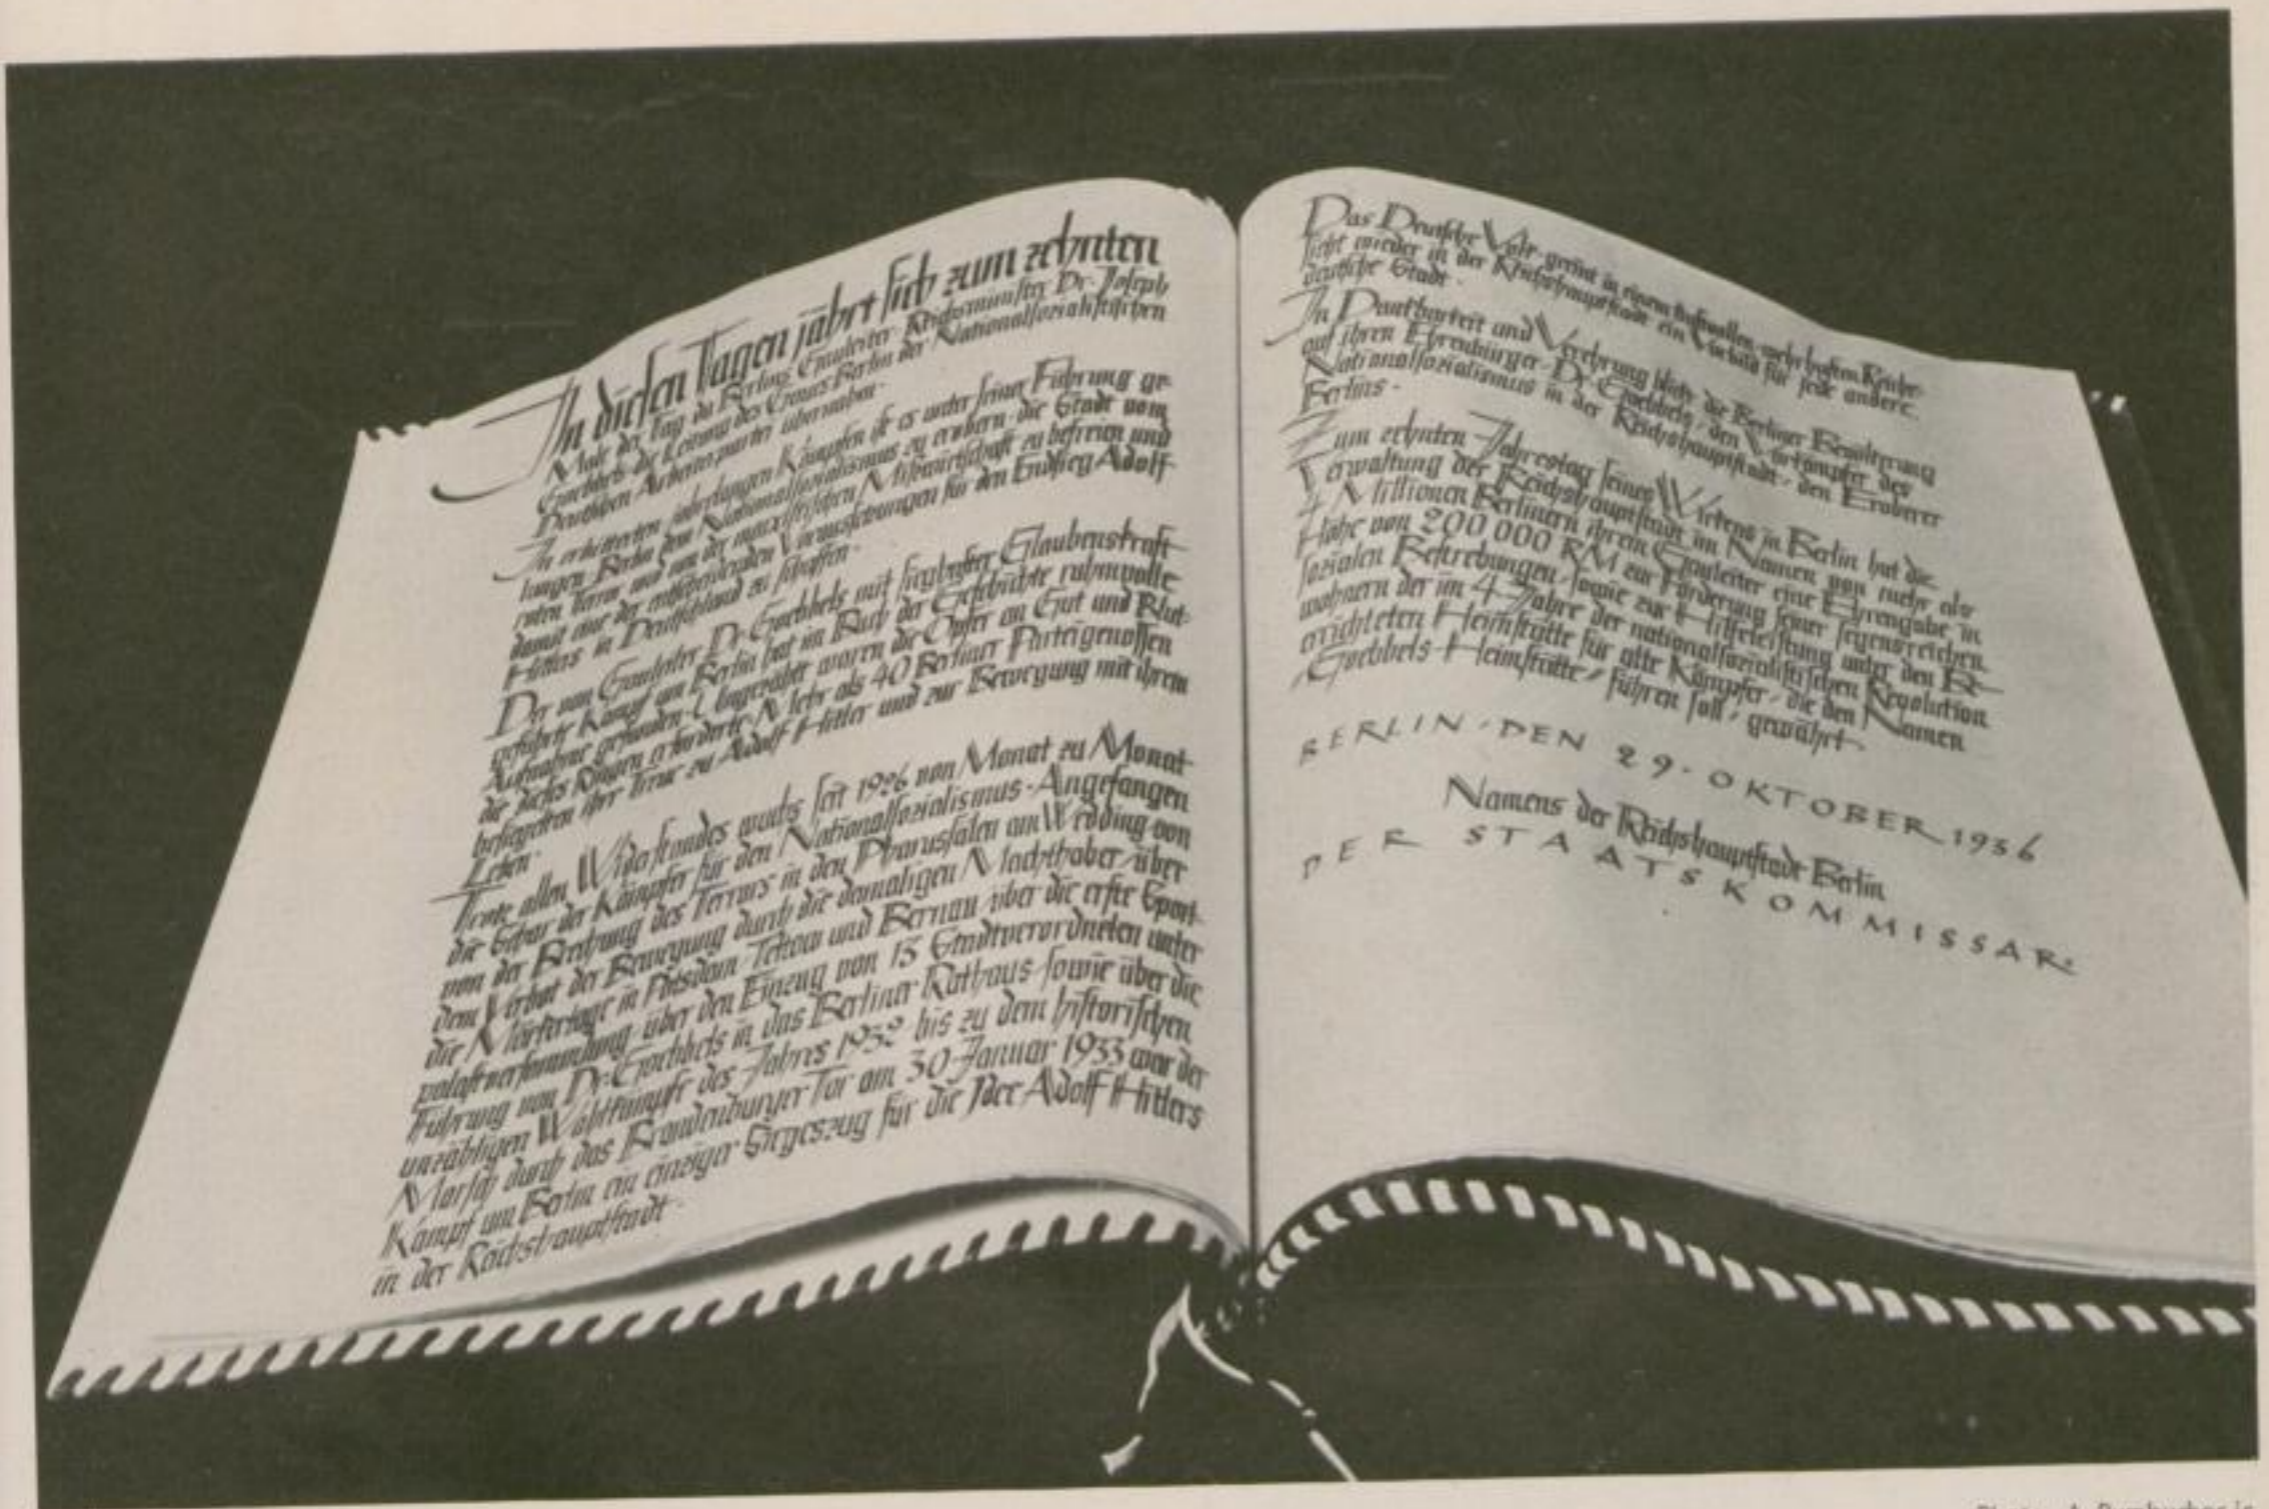 In diesen Tagen jährt sich zum zehnten
Male der Tag, da Berlins Gauleiter Reichsminister Dr. Joseph
Goebbels die Leitung des Gaues Berlin der Nationalsozialistischen
Deutschen Arbeiterpartei übernahm.
In erbitterten jahrelangen Kämpfen ist es unter seiner Führung ge-
lungen, Berlin dem Nationalsozialismus zu erobern, die Stadt vom
roten Terror und von der marxistischen Mißwirtschaft zu befreien und
damit eine der entscheidenden Voraussetzungen für den Endsieg Adolf
Hitlers in Deutschland zu schaffen.
Der von Gauleiter Dr. Goebbels mit sieghafter Glaubenskraft
geführte Kampf um Berlin hat im Buch der Geschichte ruhmvolle
Aufnahme gefunden. Ungezählt waren die Opfer an Gut und Blut,
die dieses Ringen erforderte. Mehr als 40 Berliner Parteigenossen
besiegelten ihre Treue zu Adolf Hitler und zur Bewegung mit ihrem
Leben.
Trotz allen Widerstandes wuchs seit 1926 von Monat zu Monat
die Schar der Kämpfer für den Nationalsozialismus. Angefangen
von der Brechung des Terrors in den Pharussälen am Wedding von
dem Verbot der Bewegung durch die damaligen Machthaber, über
die Märkertage in Potsdam, Teltow und Bernau, über die erste Sport-
palastversammlung, über den Einzug von 13 Stadtverordneten unter
Führung von Dr. Goebbels in das Berliner Rathaus sowie über die
unzähligen Wahlkämpfe des Jahres 1932 bis zu dem historischen
Marsch durch das Brandenburger Tor am 30. Januar 1933 war der
Kampf um Berlin ein einziger Siegeszug für die Idee Adolf Hitlers
in der Reichshauptstadt.
Das Deutsche Volk geeint in einem kraftvollen, wehrhaften Reiche
sieht wieder in der Reichshauptstadt ein Vorbild für jede andere
deutsche Stadt.
In Dankbarkeit und Verehrung blickt die Berliner Bevölkerung
auf ihren Ehrenbürger Dr. Goebbels, den Vorkämpfer des
Nationalsozialismus in der Reichshauptstadt, den Eroberer
Berlins.
Zum zehnten Jahrestag seines Wirkens in Berlin hat die
Verwaltung der Reichshauptstadt im Namen von mehr als
4 Millionen Berlinern ihrem Gauleiter eine Ehrengabe in
Höhe von 200 000 RM zur Förderung seiner segensreichen
sozialen Bestrebungen, sowie zur Hilfeleistung unter den Be-
wohnern der im 4. Jahre der nationalsozialistischen Revolution
errichteten Heimstätte für alte Kämpfer, die den Namen
„Goebbels-Heimstätte“ führen soll, gewährt.
BERLIN, DEN 29. OKTOBER 1936
Namens der Reichshauptstadt Berlin
DER STAATSKOMMISSAR: